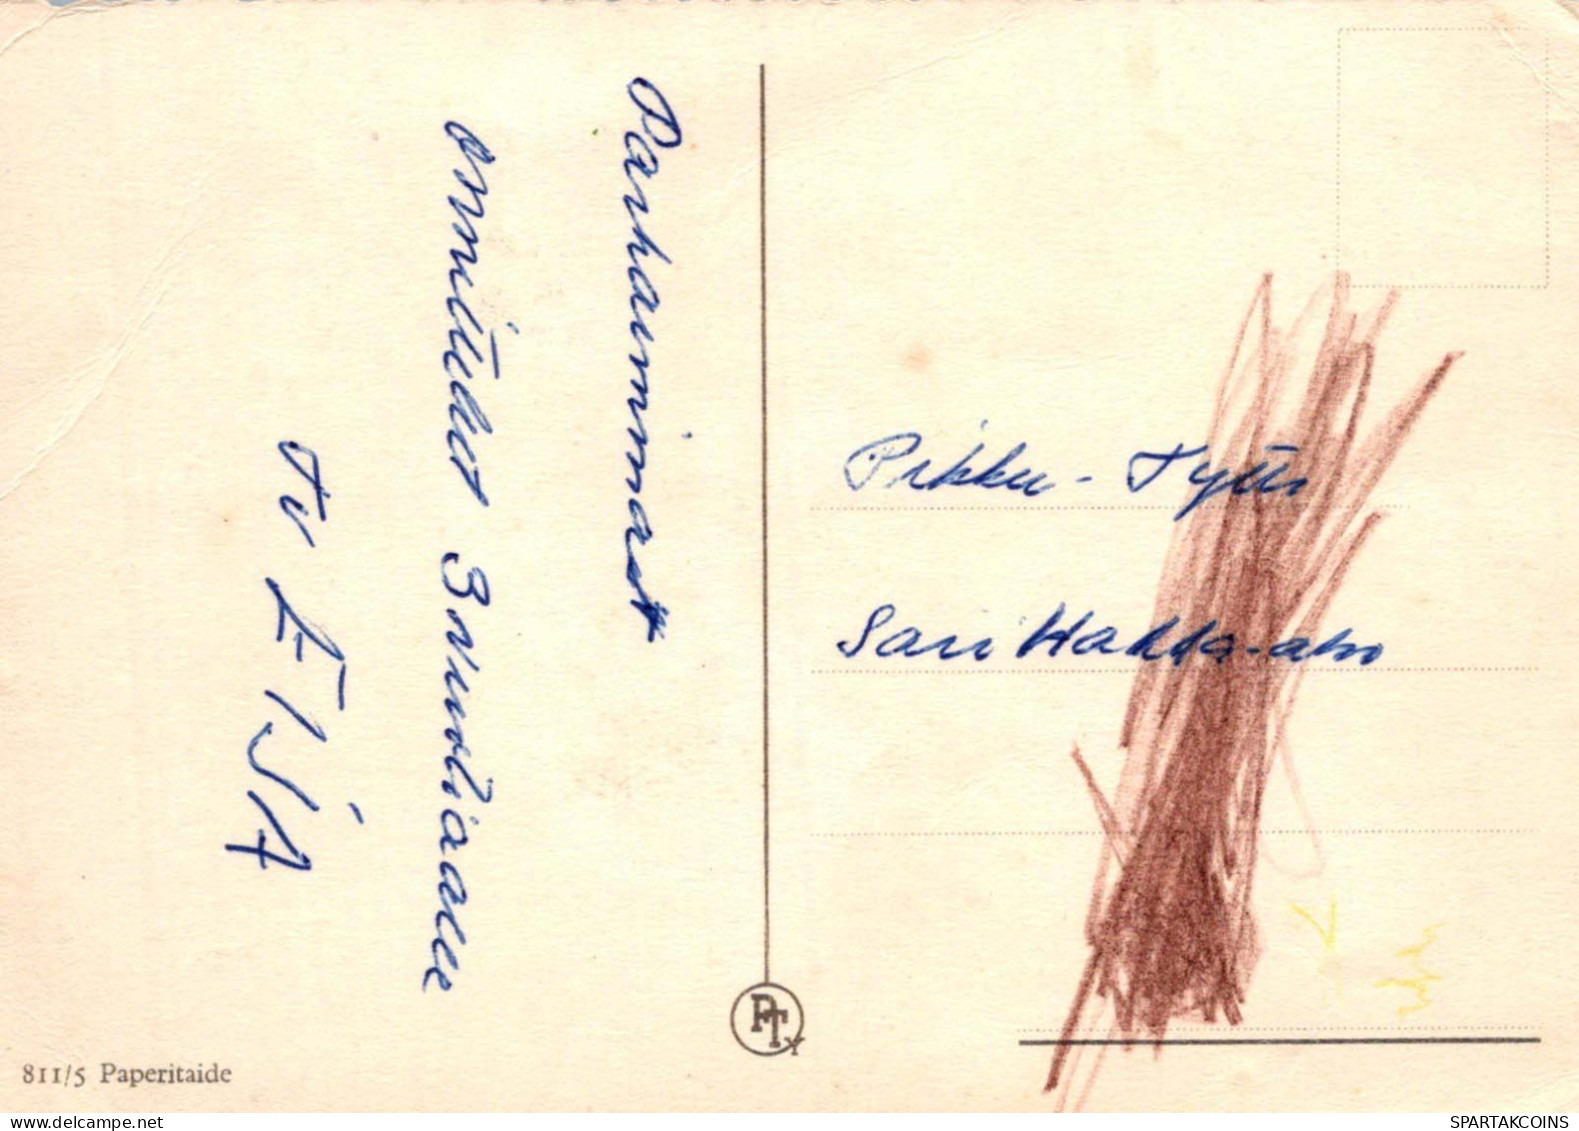 Parhaimmat
onnittelut 3 vuotiaalle
Tv EIJA
Pikku-Tytti
Sari Hakka-aho
PTY
811/5 Paperitaide
delcampe.net
SPARTAKCOINS